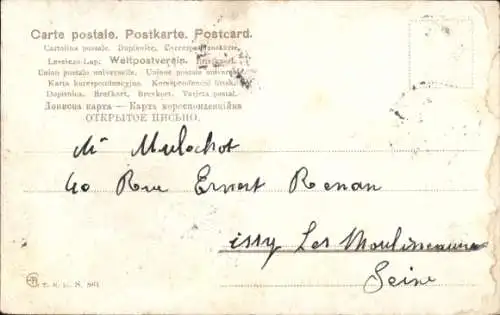 Carte postale. Postkarte. Postcard.
Cartolina postale. Dopisnice. Correspondenzkarte.
Levelező-Lap. Weltpostverein. Briefkaart.
Union postale universelle. Unione postale univers
Karta korespondencyjna. Korespondenční lístek.
Dopisnica. Brefkort. Brevkort. Tarjeta postal.
Дописна карта — Карта корреспонденційна
ОТКРЫТОЕ ПИСЬМО.
Mr Mulochot
40 Rue Ernest Renan
issy Les Moulineaux
Seine